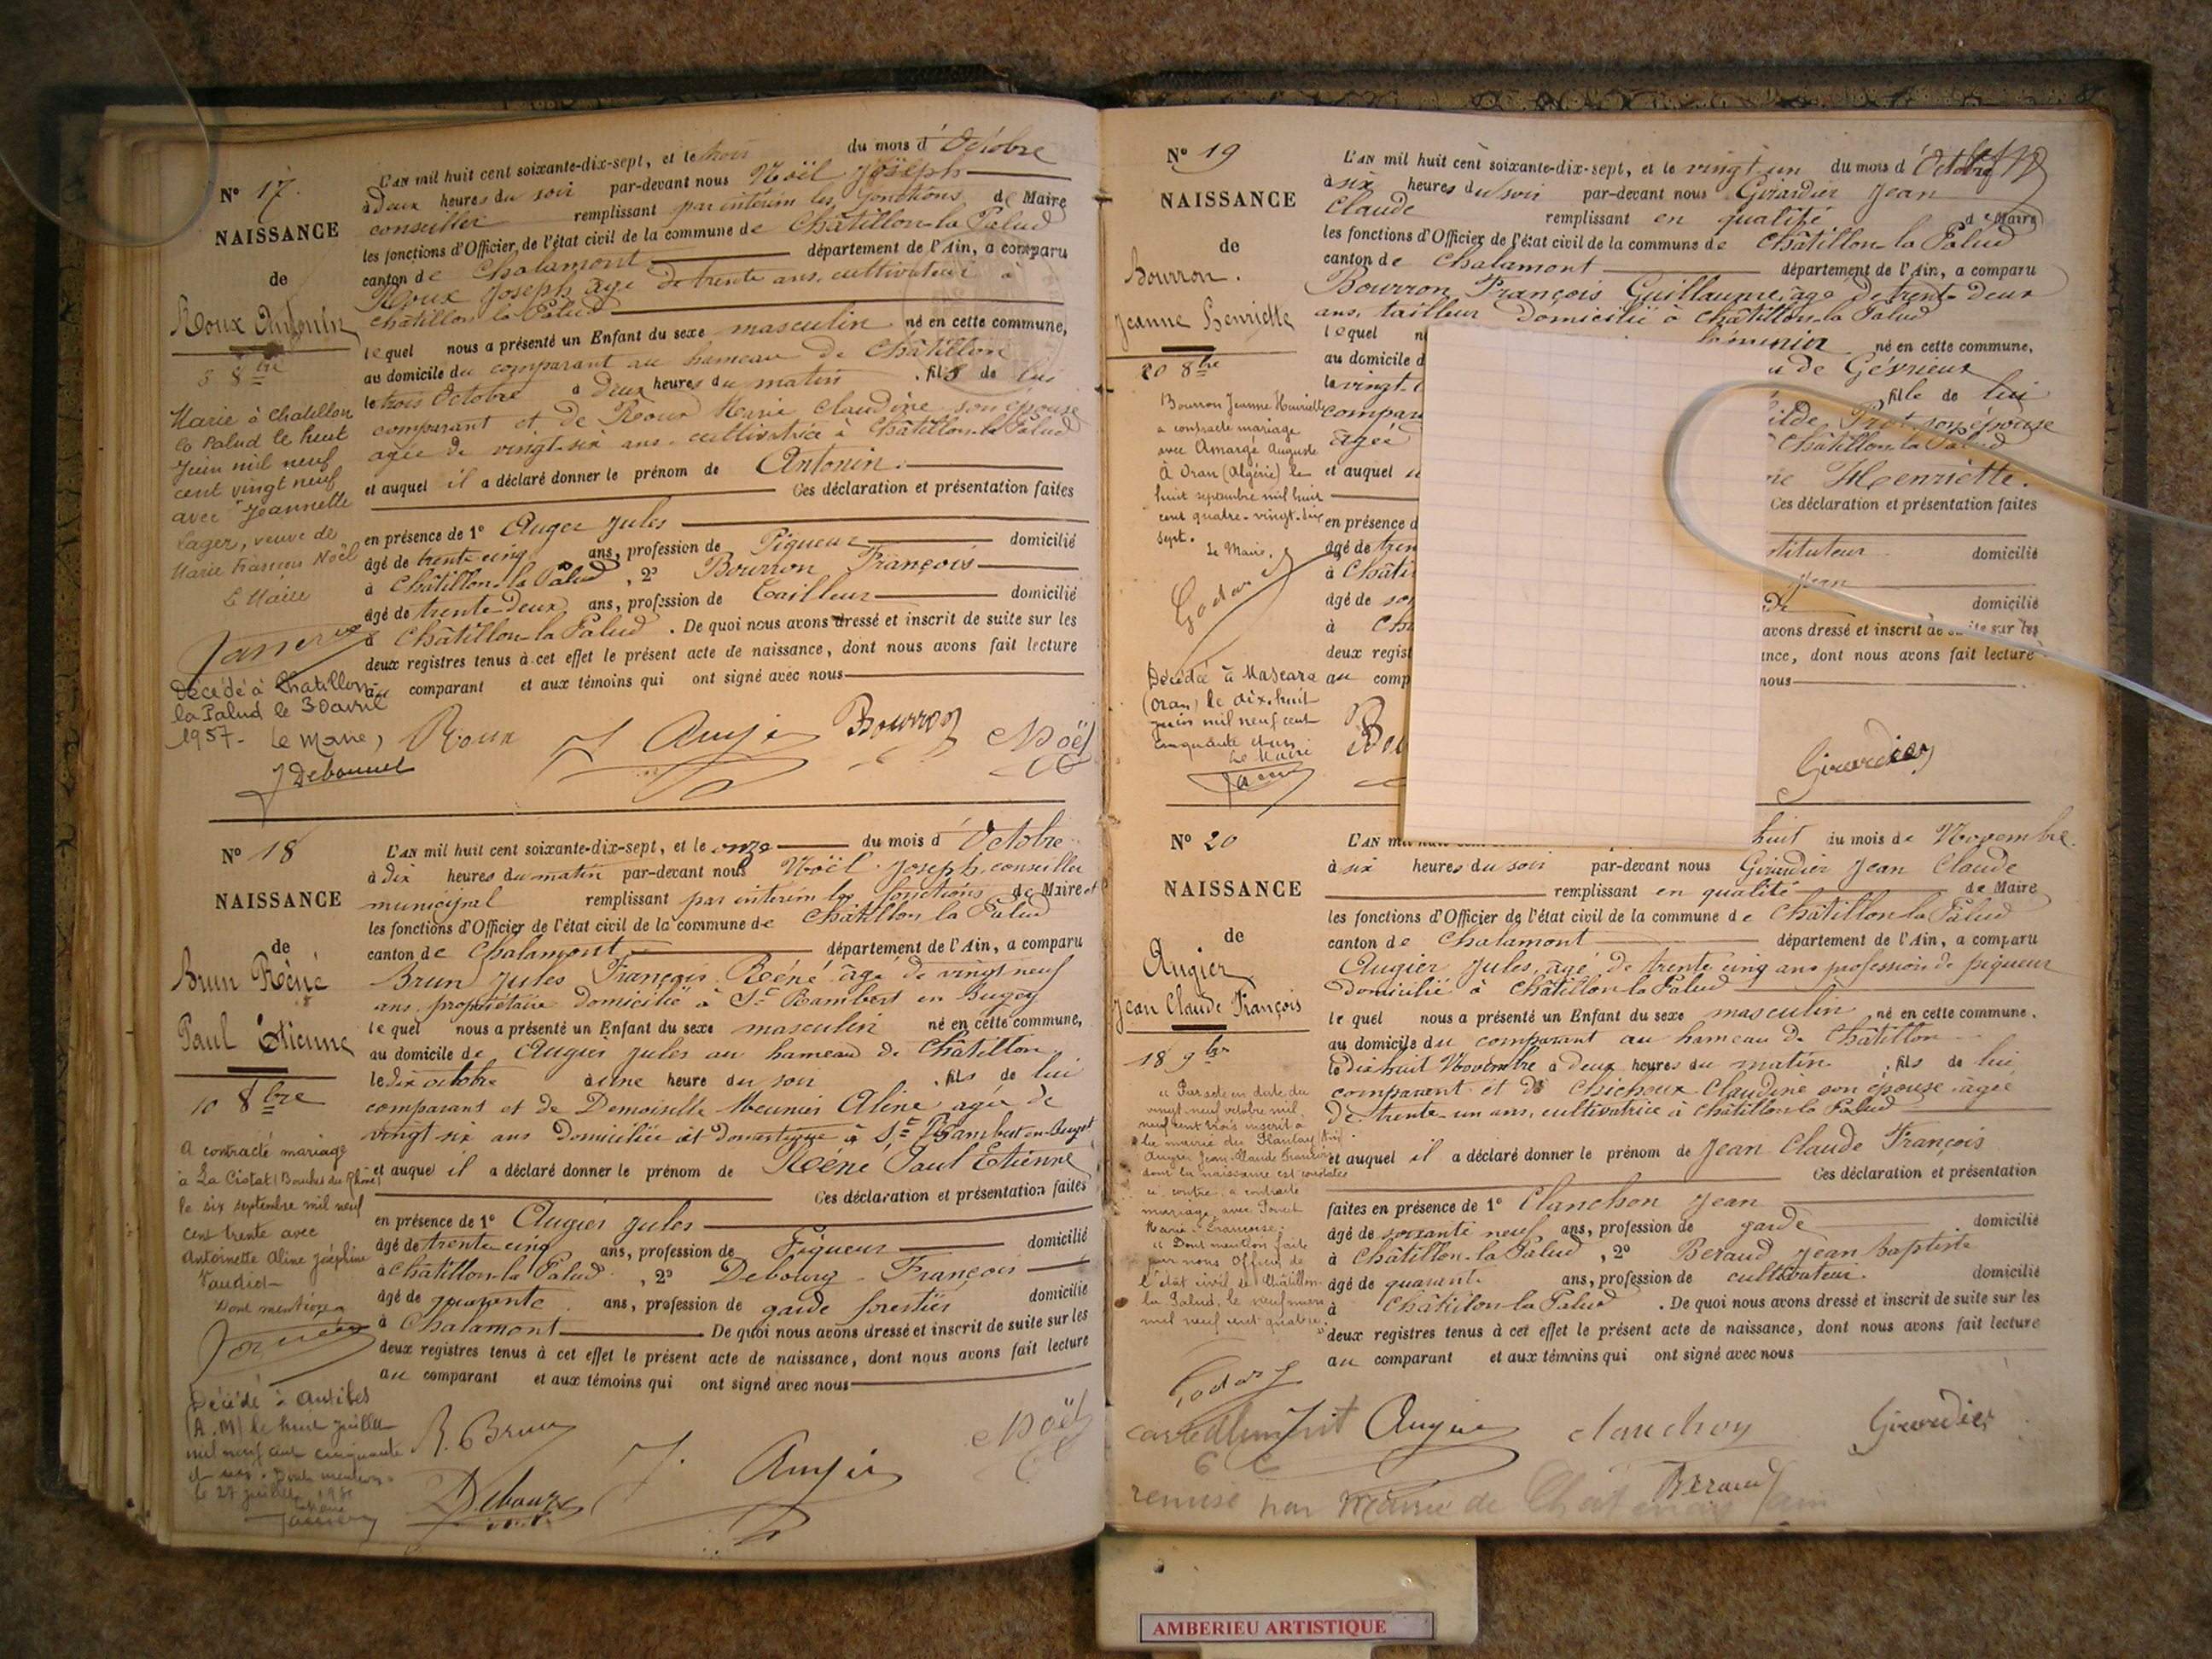 N° 17.
NAISSANCE
de
Roux Antonin
3 8bre
Marié à Chatillon
la Palud le huit
Juin mil neuf
cent vingt neuf
avec Jeannette
Lager, veuve de
Marie François Noël
Le Maire
Décédé à Chatillon-
la Palud le 30 avril
1957. Le Maire,
L'AN mil huit cent soixante-dix-sept, et le trois du mois d'Octobre
à deux heures du soir par-devant nous Noël Joseph
conseiller remplissant par intérim les fonctions de Maire
les fonctions d'Officier de l'état civil de la commune de Châtillon-la Palud
canton de Chalamont département de l'Ain, a comparu
Roux Joseph âgé de trente ans, cultivateur à
Châtillon la Palud
lequel nous a présenté un Enfant du sexe masculin né en cette commune,
au domicile du comparant au hameau de Châtillon
le trois Octobre à deux heures du matin, fils de lui
comparant et de Roux Marie Claudine son épouse
agée de vingt-six ans cultivatrice à Châtillon-la Palud
et auquel il a déclaré donner le prénom de Antonin.
Ces déclaration et présentation faites
en présence de 1° Auger Jules
âgé de trente cinq ans, profession de Piqueur domicilié
à Châtillon-la Palud, 2° Bourron François
âgé de trente-deux ans, profession de Tailleur domicilié
à Châtillon-la Palud. De quoi nous avons dressé et inscrit de suite sur les
deux registres tenus à cet effet le présent acte de naissance, dont nous avons fait lecture
au comparant et aux témoins qui ont signé avec nous
Roux J Augier Bourron Noël
N° 18
NAISSANCE
de
Brun Réné
Paul Etienne
10 8bre
A contracté mariage
à La Ciotat (Bouches du Rhône)
le six septembre mil neuf
cent trente avec
Antoinette Aline Joséphine
Dont mention
Décédé à Antibes
(A.M) le huit juillet
mil neuf cent cinquante
et un. Dont mention
le 27 juillet 1951
L'AN mil huit cent soixante-dix-sept, et le onze du mois d'Octobre
à dix heures du matin par-devant nous Noël Joseph, conseiller
municipal remplissant par intérim les fonctions de Maire et
les fonctions d'Officier de l'état civil de la commune de Châtillon la Palud
canton de Chalamont département de l'Ain, a comparu
Brun Jules François Réné âgé de vingt neuf
ans, propriétaire domicilié à St Rambert en Bugey
lequel nous a présenté un Enfant du sexe masculin né en cette commune,
au domicile de Augier Jules au hameau de Châtillon
le dix octobre à une heure du soir, fils de lui
comparant et de Demoiselle Meunier Aline agée de
vingt six ans domiciliée et domestique à St Rambert-en-Bugey
et auquel il a déclaré donner le prénom de Réné Paul Etienne
Ces déclaration et présentation faites
en présence de 1° Augier Jules
âgé de trente cinq ans, profession de Piqueur domicilié
à Châtillon-la Palud, 2° Debourg François
âgé de quarante ans, profession de garde forestier domicilié
à Chalamont De quoi nous avons dressé et inscrit de suite sur les
deux registres tenus à cet effet le présent acte de naissance, dont nous avons fait lecture
au comparant et aux témoins qui ont signé avec nous
R. Brun J. Augier Noël
N° 19
NAISSANCE
de
Bourron.
Jeanne Henriette
20 8bre
Bourron Jeanne Henriette
a contracté mariage
avec Amargé Auguste
à Oran (Algérie) le
huit septembre mil huit
cent quatre-vingt-dix
sept.
Le Maire,
Godard
Décédée à Mascara
(Oran) le dix-huit
juin mil neuf cent
cinquante
Le Maire
L'AN mil huit cent soixante-dix-sept, et le vingt un du mois d'Octobre
à six heures du soir par-devant nous Girardier Jean
Claude remplissant en qualité de Maire
les fonctions d'Officier de l'état civil de la commune de Châtillon-la Palud
canton de Chalamont département de l'Ain, a comparu
Bourron François Guillaume, âgé de trente-deux
ans, tailleur domicilié à Châtillon-la Palud
lequel féminin né en cette commune,
au domicile d de Gévrieux
le vingt fille de lui
compar son épouse
âgée Châtillon-la Palud
et auquel Henriette.
Ces déclaration et présentation faites
en présence d
âgé de tren stituteur domicilié
à Châti Jean
âgé de soi domicilié
à Ch avons dressé et inscrit de suite sur les
deux regist ance, dont nous avons fait lecture
au comp nous
Girardier
N° 20
NAISSANCE
de
Augier
Jean Claude François
18 9bre
Par acte en date du
vingt-neuf octobre mil
neuf cent trois inscrit à
la mairie du Plantay (Ain)
Augier Jean Claude François
dont la naissance est constatée
ci contre, a contracté
mariage avec
Marie Françoise.
Dont mention faite
par nous Officier de
l'état civil de Châtillon
la Palud, le neuf mars
mil neuf cent quatre.
Godard
L'AN huit du mois de Novembre.
à six heures du soir par-devant nous Girardier Jean Claude
remplissant en qualité de Maire
les fonctions d'Officier de l'état civil de la commune de Châtillon-la Palud
canton de Chalamont département de l'Ain, a comparu
Augier Jules, âgé de trente cinq ans profession de piqueur
domicilié à Châtillon-la Palud
lequel nous a présenté un Enfant du sexe masculin né en cette commune,
au domicile du comparant au hameau de Châtillon
le dix huit Novembre à deux heures du matin, fils de lui
comparant et de Chichoux Claudine son épouse âgée
de trente-un ans, cultivatrice à Châtillon-la Palud
et auquel il a déclaré donner le prénom de Jean Claude François
Ces déclaration et présentation
faites en présence de 1° Clanchon Jean
âgé de soixante neuf ans, profession de garde domicilié
à Châtillon-la Palud, 2° Beraud Jean Baptiste
âgé de quarante ans, profession de cultivateur domicilié
à Châtillon-la Palud. De quoi nous avons dressé et inscrit de suite sur les
deux registres tenus à cet effet le présent acte de naissance, dont nous avons fait lecture
au comparant et aux témoins qui ont signé avec nous
J Augier Clanchon Girardier
Beraud
par Mairie de
AMBERIEU ARTISTIQUE